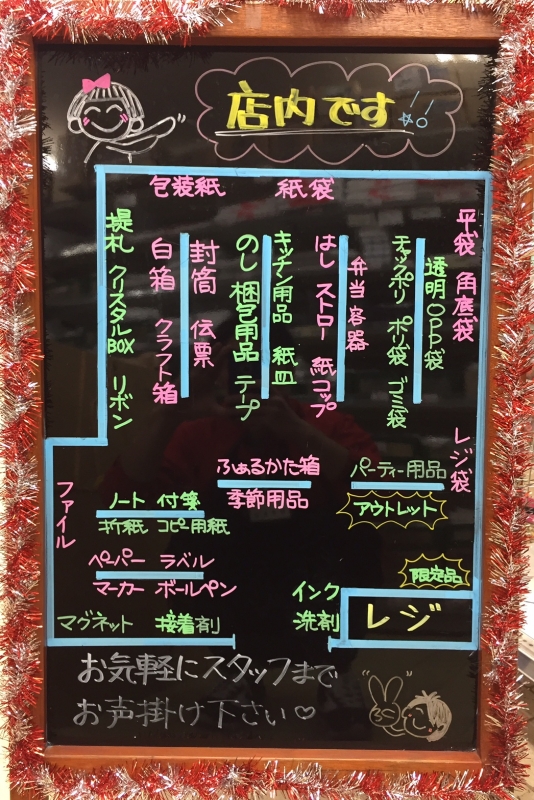 店内です!!
包装紙 紙袋
平袋 角底袋
レジ袋
透明OPP袋
チャックポリ ポリ袋 ゴミ袋
弁当容器
はし ストロー 紙コップ
キッチン用品 紙皿
のし 梱包用品 テープ
封筒 伝票
白箱 クラフト箱
提札 クリスタルBOX リボン
ふぁるかた箱
季節用品
パーティー用品
アウトレット
ファイル
ノート 付箋
折紙 コピー用紙
ペーパー ラベル
マーカー ボールペン
マグネット 接着剤
限定品
インク
洗剤
レジ
お気軽にスタッフまで
お声掛け下さい♡